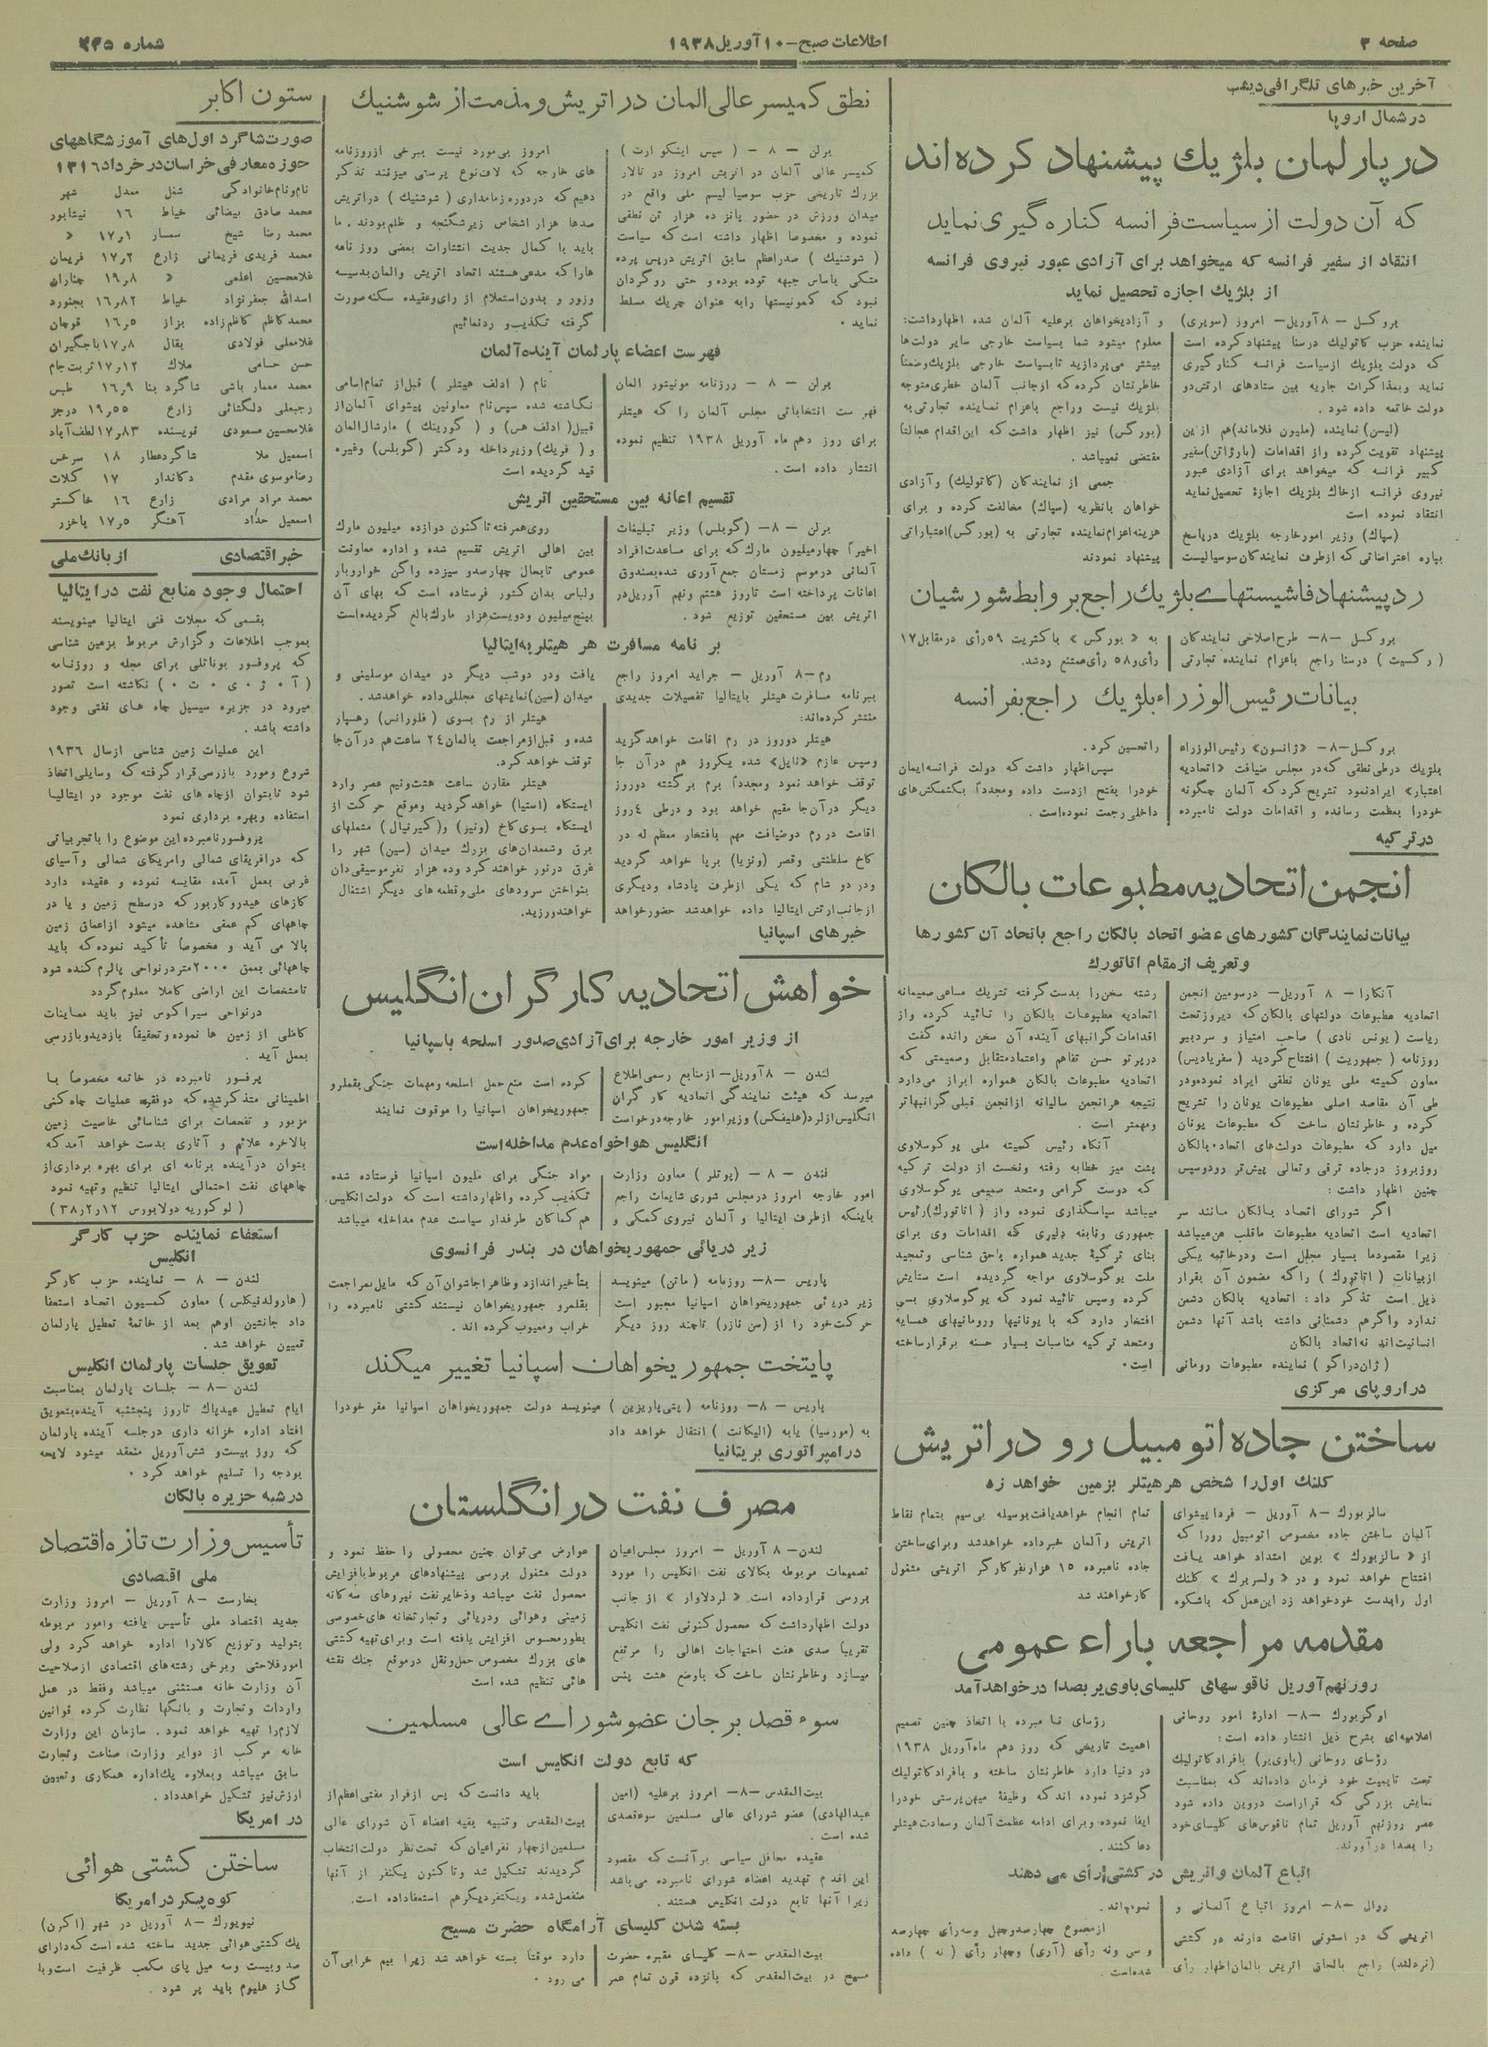 صفحه ۳
اطلاعات صبح – ۱۰ آوریل ۱۹۳۸
شماره ۲۴۵
آخرین خبرهای تلگرافی دیشب
در شمال اروپا
در پارلمان بلژیك پیشنهاد کرده‌اند
که آن دولت از سیاست فرانسه کناره گیری نماید
انتقاد از سفیر فرانسه که میخواهد برای آزادی عبور نیروی فرانسه
از بلژیك اجازه تحصیل نماید
بروکسل – ۸ آوریل – امروز (سویری)
نماینده حزب کاتولیك درسنا پیشنهاد کرده است
که دولت بلژیك ازسیاست فرانسه کنارگیری
نماید وبمذاکرات جاریه بین ستادهای ارتش دو
دولت خاتمه داده شود .
(لیسن) نماینده (ملیون فلاماند) هم از این
پیشنهاد تقویت کرده واز اقدامات (بارژاتن) سفیر
کبیر فرانسه که میخواهد برای آزادی عبور
نیروی فرانسه ازخاك بلژیك اجازهٔ تحصیل نماید
انتقاد نموده است
(سپاك) وزیر امورخارجه بلژیك درپاسخ
بپاره اعتراضاتی که ازطرف نمایندگان سوسیالیست
و آزادیخواهان برعلیه آلمان شده اظهارداشت:
معلوم میشود شما بسیاست خارجی سایر دولت‌ها
بیشتر می‌پردازید تابسیاست خارجی بلژیك وضمناً
خاطرنشان کرده که ازجانب آلمان خطری متوجه
بلژیك نیست وراجع باعزام نماینده تجارتی به
(بورگس) نیز اظهار داشت که این اقدام عجالتاً
مقتضی نمیباشد .
جمعی از نمایندکان (کاتولیك) وآزادی
خواهان بانظریه (سپاك) مخالفت کرده و برای
هزینه اعزام نماینده تجارتی به (بورگس) اعتباراتی
پیشنهاد نمودند
رد پیشنهاد فاشیستهای بلژیك راجع بروابط شورشیان
بروکسل –۸– طرح اصلاحی نمایندکان
( رکسیت ) درسنا راجع باعزام نماینده تجارتی
به « بورگس » با کثریت ۵۹ رأی درمقابل ۱۷
رأی و ۵۸ رأی ممتنع ردشد.
بیانات رئیس الوزراء بلژیك راجع بفرانسه
بروکسل –۸– «ژانسون» رئیس الوزراء
بلژیك درطی نطقی که در مجلس ضیافت «اتحادیه
اعتبار» ایرادنمود تشریح کرد که آلمان چگونه
خودرا بعظمت رسانده و اقدامات دولت نامبرده
راتحسین کرد.
سپس اظهار داشت که دولت فرانسه ایمان
خودرا بفتح ازدست داده ومجدداً بکشمکش‌های
داخلی رجعت نموده است.
در ترکیه
انجمن اتحادیه مطبوعات بالکان
بیانات نمایندگان کشورهای عضو اتحاد بالکان راجع باتحاد آن کشورها
و تعریف از مقام اتاتورك
آنکارا – ۸ آوریل – درسومین انجمن
اتحادیه مطبوعات دولتهای بالکان که دیروزتحت
ریاست (یونس نادی) صاحب امتیاز و سردبیر
روزنامه (جمهوریت) افتتاح گردید (سفریادیس)
معاون کمیته ملی یونان نطقی ایراد نموده ودر
طی آن مقاصد اصلی مطبوعات یونان را تشریح
کرده و خاطرنشان ساخت که مطبوعات یونان
میل دارد که مطبوعات دولت‌های اتحاد بالکان
روزبروز درجاده ترقی وتعالی پیش‌تر رودوسپس
چنین اظهار داشت :
اگر شورای اتحاد بالکان مانند سر
اتحادیه است اتحادیه مطبوعات ماقلب من میباشد
زیرا مقصودما بسیار مجلل است ودرخاتمه یکی
ازبیانات (اتاتورك) راکه مضمون آن بقرار
ذیل است تذکر داد : اتحادیه بالکان دشمن
ندارد واگرهم دشمنانی داشته باشد آنها دشمن
انسانیت‌اند نه اتحاد بالکان
(ژان دراکو) نماینده مطبوعات رومانی
رشته سخن را بدست گرفته تشریك مساعی صمیمانه
اتحادیه مطبوعات بالکان را تائید کرده واز
اقدامات گرانبهای آینده آن سخن رانده گفت
درپرتو حسن تفاهم واعتماد متقابل وصمیمتی که
اتحادیه مطبوعات بالکان همواره ابراز می‌دارد
نتیجه هر انجمن سالیانه ازانجمن قبلی گرانبهاتر
ومهمتر است .
آنکاه رئیس کمیته ملی یوگوسلاوی
پشت میز خطابه رفته ونخست از دولت ترکیه
که دوست گرامی ومتحد صمیمی یوگوسلاوی
میباشد سپاسگذاری نموده واز (اتاتورك) رئیس
جمهوری ونابغه دلیری که اقدامات وی برای
بنای ترکیهٔ جدید همواره باحق شناسی وتمجید
ملت یوگوسلاوی مواجه گردیده است ستایش
کرده وسپس تائید نمود که یوگوسلاوی بسی
افتخار دارد که با یونانیها ورومانیهای همسایه
ومتحد ترکیه مناسبات بسیار حسنه برقرارساخته
است .
در اروپای مرکزی
ساختن جاده اتومبیل رو در اتریش
کلنك اول را شخص هر هیتلر بزمین خواهد زد
سالزبورك –۸ آوریل – فردا پیشوای
آلمان ساختن جاده مخصوص اتومبیل رورا که
از « سالزبورك » بوین امتداد خواهد یافت
افتتاح خواهد نمود و در « ولسربرك » کلنك
اول رابدست خودخواهد زد این عمل که باشکوه
تمام انجام خواهدیافت بوسیله بی‌سیم بتمام نقاط
اتریش وآلمان خبرداده خواهدشد وبرای ساختن
جاده نامبرده ۱۵ هزارنفر کارگر اتریشی مشغول
کارخواهند شد
مقدمه مراجعه باراء عمومی
روز نهم آوریل ناقوسهای کلیسای باویر بصدا درخواهد آمد
اوگزبورك –۸– ادارهٔ امور روحانی
اعلامیه‌ای بشرح ذیل انتشار داده است :
رؤسای روحانی (باویر) بافراد کاتولیك
تحت تابعیت خود فرمان داده‌اند که بمناسبت
نمایش بزرگی که قراراست دروین داده شود
عصر روز نهم آوریل تمام ناقوس‌های کلیسای خود
را بصدا درآورند.
رؤسای نامبرده با اتخاذ چنین تصمیم
اهمیت تاریخی که روز دهم ماه آوریل ۱۹۳۸
در دنیا دارد خاطرنشان ساخته و بافراد کاتولیك
گوشزد نموده‌اند که وظیفهٔ میهن پرستی خودرا
ایفا نموده وبرای ادامه عظمت آلمان وسعادت هیتلر
دعا کنند .
اتباع آلمان واتریش در کشتی رأی می دهند
روال –۸– امروز اتباع آلمانی و
اتریشی که در استونی اقامت دارند در کشتی
(نردلند) راجع بالحاق اتریش بالمان اظهار رأی
نموده‌اند.
ازمجموع چهارصدوچهل وسه رأی چهارصد
و سی ونه رأی (آری) وچهار رأی (نه) داده
شده است .
نطق کمیسر عالی المان در اتریش و مذمت از شوشنیك
برلن – ۸ – ( سیس اینکو ارت )
کمیسر عالی آلمان در اتریش امروز در تالار
بزرك تاریخی حزب سوسیا لیسم ملی واقع در
میدان ورزش در حضور پانزده هزار تن نطقی
نموده و مخصوصا اظهار داشته است که سیاست
( شوشنیك ) صدراعظم سابق اتریش درپس پرده
متکی باساس جبهه توده بوده و حتی روگردان
نبود که کمونیستها رابه عنوان چریك مسلط
نماید .
امروز بی‌مورد نیست ببرخی ازروزنامه
های خارجه که لاف نوع پرستی میزنند تذکر
دهیم که دردوره زمامداری ( شوشنیك ) دراتریش
صدها هزار اشخاص زیرشگنجه و ظلم بودند. ما
باید با کمال جدیت انتشارات بعضی روزنامه
هارا که مدعی هستند اتحاد اتریش والمان بدسیسه
وزور و بدون استعلام از رای وعقیده سکنه صورت
گرفته تکذیب و ردنمائیم
فهرست اعضاء پارلمان آینده آلمان
برلن – ۸ – روزنامه مونیتور المان
فهر ست انتخاباتی مجلس آلمان را که هیتلر
برای روز دهم ماه آوریل ۱۹۳۸ تنظیم نموده
انتشار داده است .
نام ( ادلف هیتلر ) قبل از تمام اسامی
نگاشته شده سپس نام معاونین پیشوای آلمان از
قبیل (ادلف هس) و ( گورینك ) مارشال المان
و ( فریك) وزیر داخله ودکتر (گوبلس) وغیره
قید گردیده است
تقسیم اعانه بین مستحقین اتریش
برلن –۸– (گوبلس) وزیر تبلیغات
اخیراً چهارمیلیون مارك که برای مساعدت افراد
آلمانی درموسم زمستان جمع آوری شده بصندوق
اعانات پرداخته است تاروز هشتم ونهم آوریل در
اتریش بین مستحقین توزیع شود .
روی همرفته تاکنون دوازده میلیون مارك
بین اهالی اتریش تقسیم شده و اداره معاونت
عمومی تابحال چهارصدو سیزده واگن خواروبار
ولباس بدان کشور فرستاده است که بهای آن
بپنج میلیون ودویست هزار مارك بالغ گردیده است
بر نامه مسافرت هر هیتلر به ایتالیا
رم –۸ آوریل – جراید امروز راجع
ببرنامه مسافرت هیتلر بایتالیا تفصیلات جدیدی
منتشر کرده‌اند:
هیتلر دوروز در رم اقامت خواهدگزید
وسپس عازم «ناپل» شده یکروز هم درآن جا
توقف خواهد نمود ومجدداً برم برگشته دوروز
دیگر درآن جا مقیم خواهد بود و درطی ٤ روز
اقامت دررم دوضیافت مهم بافتخار معظم له در
کاخ سلطنتی وقصر (ونزیا) برپا خواهد گردید
ودر دو شام که یکی ازطرف پادشاه ودیگری
ازجانب ارتش ایتالیا داده خواهدشد حضورخواهد
یافت ودر دوشب دیگر در میدان موسلینی و
میدان (سین) نمایشهای مجللی داده خواهدشد.
هیتلر از رم بسوی (فلورانس) رهسپار
شده و قبل ازمراجعت بالمان ۲٤ ساعت هم درآن جا
توقف خواهد کرد.
هیتلر مقارن ساعت هشت ونیم عصر وارد
ایستگاه (استیا) خواهدگردید وموقع حرکت از
ایستگاه بسوی کاخ (ونیز) و(کیرنیال) مشعلهای
برق وشمعدان‌های بزرك میدان (سین) شهر را
غرق درنور خواهند کرد وده هزار نفر موسیقی دان
بنواختن سرودهای ملی وقطعه های دیگر اشتغال
خواهندورزید.
خبرهای اسپانیا
خواهش اتحادیه کارگران انگلیس
از وزیر امور خارجه برای آزادی صدور اسلحه باسپانیا
لندن – ۸ آوریل – ازمنابع رسمی اطلاع
میرسد که هیئت نمایندگی اتحادیه کارگران
انگلیس ازلرد (هلیفکس) وزیرامور خارجه درخواست
کرده است منع حمل اسلحه ومهمات جنگی بقلمرو
جمهوریخواهان اسپانیا را موقوف نمایند
انگلیس هواخواه عدم مداخله است
لندن – ۸ – (بوتلر) معاون وزارت
امور خارجه امروز درمجلس شوری شایعات راجع
باینکه ازطرف ایتالیا و آلمان نیروی کمکی و
مواد جنگی برای ملیون اسپانیا فرستاده شده
تکذیب کرده واظهارداشته است که دولت انکلیس
هم کماکان طرفدار سیاست عدم مداخله میباشد
زیر دریائی جمهوریخواهان در بندر فرانسوی
پاریس –۸– روزنامه (ماتن) مینویسد
زیر دریائی جمهوریخواهان اسپانیا مجبور است
حرکت خود را از (سن نازر) تاچند روز دیگر
بتأخیراندازد وظاهرا جاشوان آن که مایل بمراجعت
بقلمرو جمهوریخواهان نیستند کشتی نامبرده را
خراب ومعیوب کرده اند .
پایتخت جمهوریخواهان اسپانیا تغییر میکند
پاریس –۸– روزنامه (پتی پاریزین) مینویسد دولت جمهوریخواهان اسپانیا مقر خودرا
به (مورسیا) یابه (الیکانت) انتقال خواهد داد
در امپراتوری بریتانیا
مصرف نفت در انگلستان
لندن – ۸ آوریل – امروز مجلس اعیان
تصمیمات مربوطه بکالای نفت انکلیس را مورد
بررسی قرارداده است . « لردلاوار » از جانب
دولت اظهارداشت که محصول کنونی نفت انکلیس
تقریباً صدی هفت احتیاجات اهالی را مرتفع
میسازد وخاطرنشان ساخت که باوضع هشت پنس
عوارض می‌توان چنین محصولی را حفظ نمود و
دولت مشغول بررسی پیشنهادهای مربوط بافزایش
محصول نفت میباشد وذخایرنفت نیروهای سه کانه
زمینی وهوائی ودریائی وتجارتخانه های خصوصی
بطورمحسوس افزایش یافته است وبرای تهیه کشتی
های بزرك مخصوص حمل ونقل درموقع جنك نقشه
هائی تنظیم شده است
سوء قصد بر جان عضو شورای عالی مسلمین
که تابع دولت انکلیس است
بیت المقدس –۸– امروز برعلیه (امین
عبدالهادی) عضو شورای عالی مسلمین سوءقصدی
شده است .
عقیده محافل سیاسی بر آنست که مقصود
این اقدم تهدید اعضاء شورای نامبرده می‌باشد
زیرا آنها تابع دولت انکلیس هستند .
باید دانست که پس ازفرار مفتی اعظم از
بیت المقدس وتنبیه بقیه اعضاء آن شورای عالی
مسلمین ازچهار نفراعیان که تحت نظر دولت انتخاب
گردیدند تشکیل شد وتاکنون یکنفر از آنها
منفصل شده ویکنفردیگرهم استعفاداده است.
بسته شدن کلیسای آرامگاه حضرت مسیح
بیت المقدس –۸– کلیسای مقبره حضرت
مسیح در بیت المقدس که پانزده قرن تمام عمر
دارد موقتاً بسته خواهد شد زیرا بیم خرابی آن
می رود .
ستون اکابر
صورت شاگرد اول‌های آموزشگاههای
حوزه معارفی خراسان در خرداد ۱۳۱۶
نام ونام خانوادگی شغل معدل شهر
محمد صادق بیضائی خیاط ۱۶ نیشابور
محمد رضا شیخ سمسار ۱ر۱۷ «
محمد فریدی فریمانی زارع ۲ر۱۷ فریمان
غلامحسین اعلمی « ۸ر۱۹ چناران
اسدالله جعفرنژاد خیاط ۸۲ر۱۶ بجنورد
محمدکاظم کاظم زاده بزاز ۵ر۱۶ قوچان
غلامعلی فولادی بقال ۸ر۱۷ باجگیران
حسن حسامی ملاك ۱۲ر۱۷ تربت جام
محمد معمار باشی شاگرد بنا ۹ر۱۶ طبس
رجبعلی دلگشائی زارع ۵۵ر۱۹ درجز
غلامحسین مسعودی نویسنده ۸۳ر۱۷ لطف آباد
اسمعیل ملا شاگردعطار ۱۸ سرخس
رضاموسوی مقدم دکاندار ۱۷ کلات
محمد مراد مرادی زارع ۱۶ خاکستر
اسمعیل حداد آهنگر ۵ر۱۷ باخزر
خبر اقتصادی
از بانك ملی
احتمال وجود منابع نفت در ایتالیا
بقسمی که مجلات فنی ایتالیا مینویسند
بموجب اطلاعات وگزارش مربوط بزمین شناسی
که پروفسور بوناتلی برای مجله و روزنامه
( آ ۰ ژ ۰ ی ۰ ت ۰ ) نکاشته است تصور
میرود در جزیره سیسیل چاه های نفتی وجود
داشته باشد .
این عملیات زمین شناسی ازسال ۱۹۳۶
شروع ومورد بازرسی قرار گرفته که وسایلی اتخاذ
شود تابتوان ازچاه‌های نفت موجود در ایتالیا
استفاده وبهره برداری نمود
پروفسورنامبرده این موضوع را باتجربیاتی
که درافریقای شمالی وامریکای شمالی وآسیای
غربی بعمل آمده مقایسه نموده و عقیده دارد
کازهای هیدروکاربور که درسطح زمین و یا در
چاههای کم عمقی مشاهده میشود ازاعماق زمین
بالا می آید و مخصوصاً تأکید نموده که باید
چاههائی بعمق ۲۰۰۰ متر درنواحی پالرم کنده شود
تامشخصات این اراضی کاملا معلوم گردد
درنواحی سیراکوس نیز باید معاینات
کاملی از زمین ها نموده وتحقیقاً بازدید وبازرسی
بعمل آید .
پرفسور نامبرده در خاتمه مخصوصاً با
اطمینانی متذکر شده که دوفقره عملیات چاه کنی
مزبور و تفحصات برای شناسائی خاصیت زمین
بالاخره علائم و آثاری بدست خواهد آمد که
بتوان درآینده برنامه ای برای بهره برداری از
چاههای نفت احتمالی ایتالیا تنظیم وتهیه نمود
( لوکوریه دولابورس ۱۲ر۲ر۳۸ )
استعفاء نماینده حزب کارگر
انکلیس
لندن – ۸ – نماینده حزب کارگر
(هارولدنیکلس) معاون کمسیون اتحاد استعفا
داد جانشین اوهم بعد از خاتمهٔ تعطیل پارلمان
تعیین خواهد شد .
تعویق جلسات پارلمان انکلیس
لندن –۸– جلسات پارلمان بمناسبت
ایام تعطیل عیدپاك تاروز پنجشنبه آینده بتعویق
افتاد اداره خزانه داری درجلسه آینده پارلمان
که روز بیست و شش آوریل منعقد میشود لایحه
بودجه را تسلیم خواهد کرد .
در شبه جزیره بالکان
تأسیس وزارت تازه اقتصاد
ملی اقتصادی
بخارست –۸ آوریل – امروز وزارت
جدید اقتصاد ملی تأسیس یافته وامور مربوطه
بتولید وتوزیع کالارا اداره خواهد کرد ولی
امور فلاحتی وبرخی رشته‌های اقتصادی ازصلاحیت
آن وزارت خانه مستثنی میباشد وفقط در عمل
واردات وتجارت و بانگها نظارت کرده قوانین
لازم را تهیه خواهد نمود . سازمان این وزارت
خانه مرکب از دوایر وزارت صناعت وتجارت
سابق میباشد وبعلاوه یك اداره همکاری وتعیین
ارزش نیز تشکیل خواهدداد .
در امریکا
ساختن کشتی هوائی
کوه پیکر در امریکا
نیویورك –۸ آوریل در شهر (اکرن)
یك کشتی هوائی جدید ساخته شده است که دارای
صد وبیست وسه میل پای مکعب ظرفیت است وبا
گاز هلیوم باید پر شود .